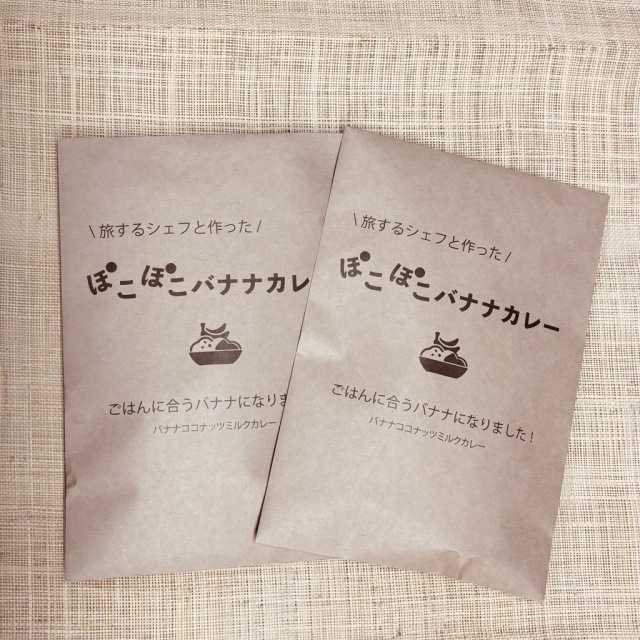 \ 旅するシェフと作った /
ぽこぽこバナナカレ
ごはんに合うバナナになりま
バナナココナッツミルクカレー
\ 旅するシェフと作った /
ぽこぽこバナナカレー
ごはんに合うバナナになりました！
バナナココナッツミルクカレー